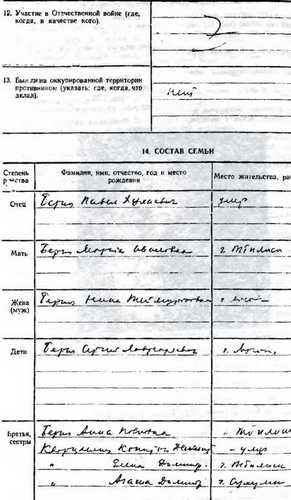 12. Участие в Отечественной войне (где, когда, в качестве кого).
13. Был ли на оккупированной территории противником (указать: где, когда, что делал).
нет
14. СОСТАВ СЕМЬИ
Степень родства
Фамилия, имя, отчество, год и место рождения
Место жительства, ра
Отец
Берия Павел Хухаевич
умер
Мать
Берия Марта
г. Тбилиси
Жена (муж)
Берия Нина Теймуразовна
Дети
Берия Сергей Лаврентьевич
Братья, сестры
Берия Анна Павловна
Тбилиси
Капитон
умер
" Елена Димитр.
г. Тбилиси
" Агаша Димитр.
г. Сухуми